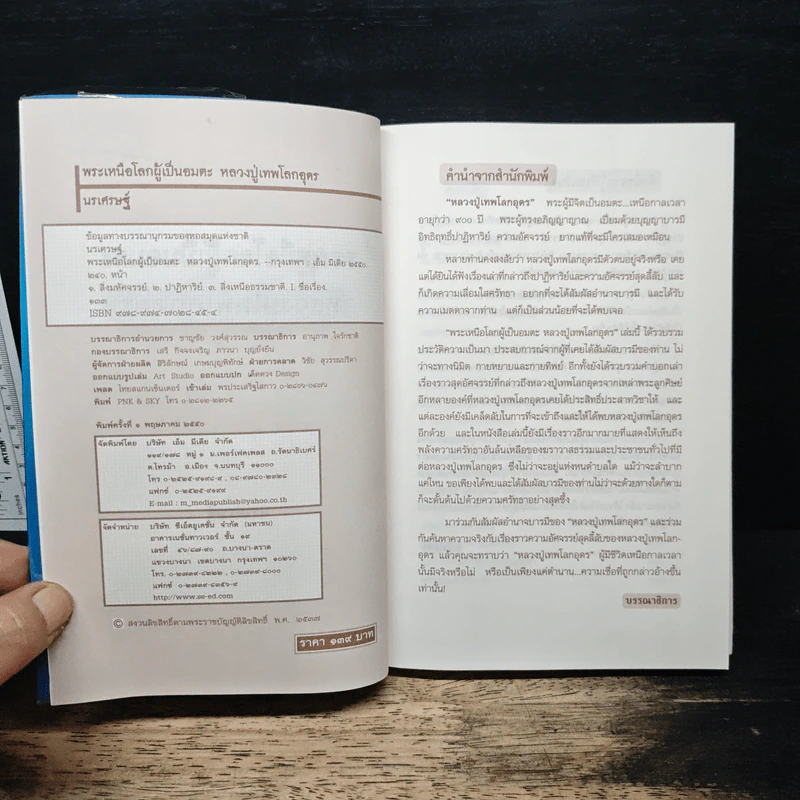 พระเหนือโลกผู้เป็นอมตะ หลวงปู่เทพโลกอุดร
นรเศรษฐ์
ข้อมูลทางบรรณานุกรมของหอสมุดแห่งชาติ
นรเศรษฐ์.
พระเหนือโลกผู้เป็นอมตะ หลวงปู่เทพโลกอุดร. --กรุงเทพฯ : เอ็ม มีเดีย ๒๕๕๐.
๒๔๐. หน้า
๑. สิ่งมหัศจรรย์. ๒. ปาฏิหาริย์. ๓. สิ่งเหนือธรรมชาติ. I. ชื่อเรื่อง.
๑๓๓
ISBN ๙๗๘-๙๗๔-๗๐๒๘-๔๕-๔
บรรณาธิการอำนวยการ ชาญชัย วงศ์สุวรรณ บรรณาธิการ อานุภาพ ใจรักชาติ
กองบรรณาธิการ เสรี กิจจงเจริญ ภาวนา บุญยั่งยืน
ผู้จัดการฝ่ายผลิต สิริลักษณ์ เกษมบุญพิทักษ์ ฝ่ายการตลาด วิชัย สุวรรณปรีดา
ออกแบบรูปเล่ม Art Studio ออกแบบปก เด็ดดวง Design
เพลต ไทยสแกนเซ็นเตอร์ เข้าเล่ม พรประเสริฐไสกาว
พิมพ์ PNK & SKY โทร ๐-๒๘๑๒-๒๒๖๕
พิมพ์ครั้งที่ ๑ พฤษภาคม ๒๕๕๐
จัดพิมพ์โดย บริษัท เอ็ม มีเดีย จำกัด
๑๑๙/๑๗๘ หมู่ ๑ ม.เพอร์เฟคเพลส ถ.รัตนาธิเบศร์
ต.ไทรม้า อ.เมือง จ.นนทบุรี ๑๑๐๐๐
โทร ๐-๒๕๒๕-๙๑๙๘-๙ ,
แฟกซ์ ๐-๒๕๒๕-๙๑๙๙
E-mail : m_mediapublish@yahoo.co.th
จัดจำหน่าย บริษัท ซีเอ็ดยูเคชั่น จำกัด (มหาชน)
อาคารเนชั่นทาวเวอร์ ชั้น ๑๙
เลขที่ ๔๖/๘๗-๙๐ ถ.บางนา-ตราด
แขวงบางนา เขตบางนา กรุงเทพฯ ๑๐๒๖๐
โทร. ๐-๒๗๓๙-๘๒๒๒ , ๐-๒๗๓๙-๘๐๐๐
แฟกซ์ ๐-๒๗๓๙-๘๓๕๖-๙
http://www.se-ed.com
© สงวนลิขสิทธิ์ตามพระราชบัญญัติลิขสิทธิ์ พ.ศ. ๒๕๓๗
ราคา ๑๓๙ บาท
คำนำจากสำนักพิมพ์
“หลวงปู่เทพโลกอุดร” พระผู้มีจิตเป็นอมตะ...เหนือกาลเวลา
อายุกว่า ๙๐๐ ปี พระผู้ทรงอภิญญาญาณ เปี่ยมด้วยบุญญาบารมี
อิทธิฤทธิ์ปาฏิหาริย์ ความอัศจรรย์ ยากแท้ที่จะมีใครเสมอเหมือน
หลายท่านคงสงสัยว่า หลวงปู่เทพโลกอุดรมีตัวตนอยู่จริงหรือ เคย
แต่ได้ยินได้ฟังเรื่องเล่าที่กล่าวถึงปาฏิหาริย์และความอัศจรรย์สุดลี้ลับ และ
ก็เกิดความเลื่อมใสศรัทธา อยากที่จะได้สัมผัสอำนาจบารมี และได้รับ
ความเมตตาจากท่าน แต่ก็เป็นส่วนน้อยที่จะได้พบเจอ
“พระเหนือโลกผู้เป็นอมตะ หลวงปู่เทพโลกอุดร” เล่มนี้ ได้รวบรวม
ประวัติความเป็นมา ประสบการณ์จากผู้ที่เคยได้สัมผัสบารมีของท่าน ไม่
ว่าจะทางนิมิต กายหยาบและกายทิพย์ อีกทั้งยังได้รวบรวมคำบอกเล่า
เรื่องราวสุดอัศจรรย์ที่กล่าวถึงหลวงปู่เทพโลกอุดรจากเหล่าพระลูกศิษย์
อีกหลายองค์ที่หลวงปู่เทพโลกอุดรเคยได้ประสิทธิ์ประสาทวิชาให้ และ
แต่ละองค์ยังมีเคล็ดลับในการที่จะเข้าถึงและให้ได้พบหลวงปู่เทพโลกอุดร
อีกด้วย และในหนังสือเล่มนี้ยังมีเรื่องราวอีกมากมายที่แสดงให้เห็นถึง
พลังความศรัทธาอันล้นเหลือของฆราวาสธรรมและประชาชนทั่วไปที่มี
ต่อหลวงปู่เทพโลกอุดร ซึ่งไม่ว่าจะอยู่แห่งหนตำบลใด แม้ว่าจะลำบาก
แค่ไหน ขอเพียงได้พบและได้สัมผัสบารมีของท่านไม่ว่าจะด้วยทางใดก็ตาม
ก็จะดั้นด้นไปด้วยความศรัทธาอย่างสุดซึ้ง
มาร่วมกันสัมผัสอำนาจบารมีของ “หลวงปู่เทพโลกอุดร” และร่วม
กันค้นหาความจริงกับเรื่องราวความอัศจรรย์สุดลี้ลับของหลวงปู่เทพโลก-
อุดร แล้วคุณจะทราบว่า “หลวงปู่เทพโลกอุดร” ผู้มีชีวิตเหนือกาลเวลา
นั้นมีจริงหรือไม่ หรือเป็นเพียงแค่ตำนาน...ความเชื่อที่ถูกกล่าวอ้างขึ้น
เท่านั้น!
บรรณาธิการ